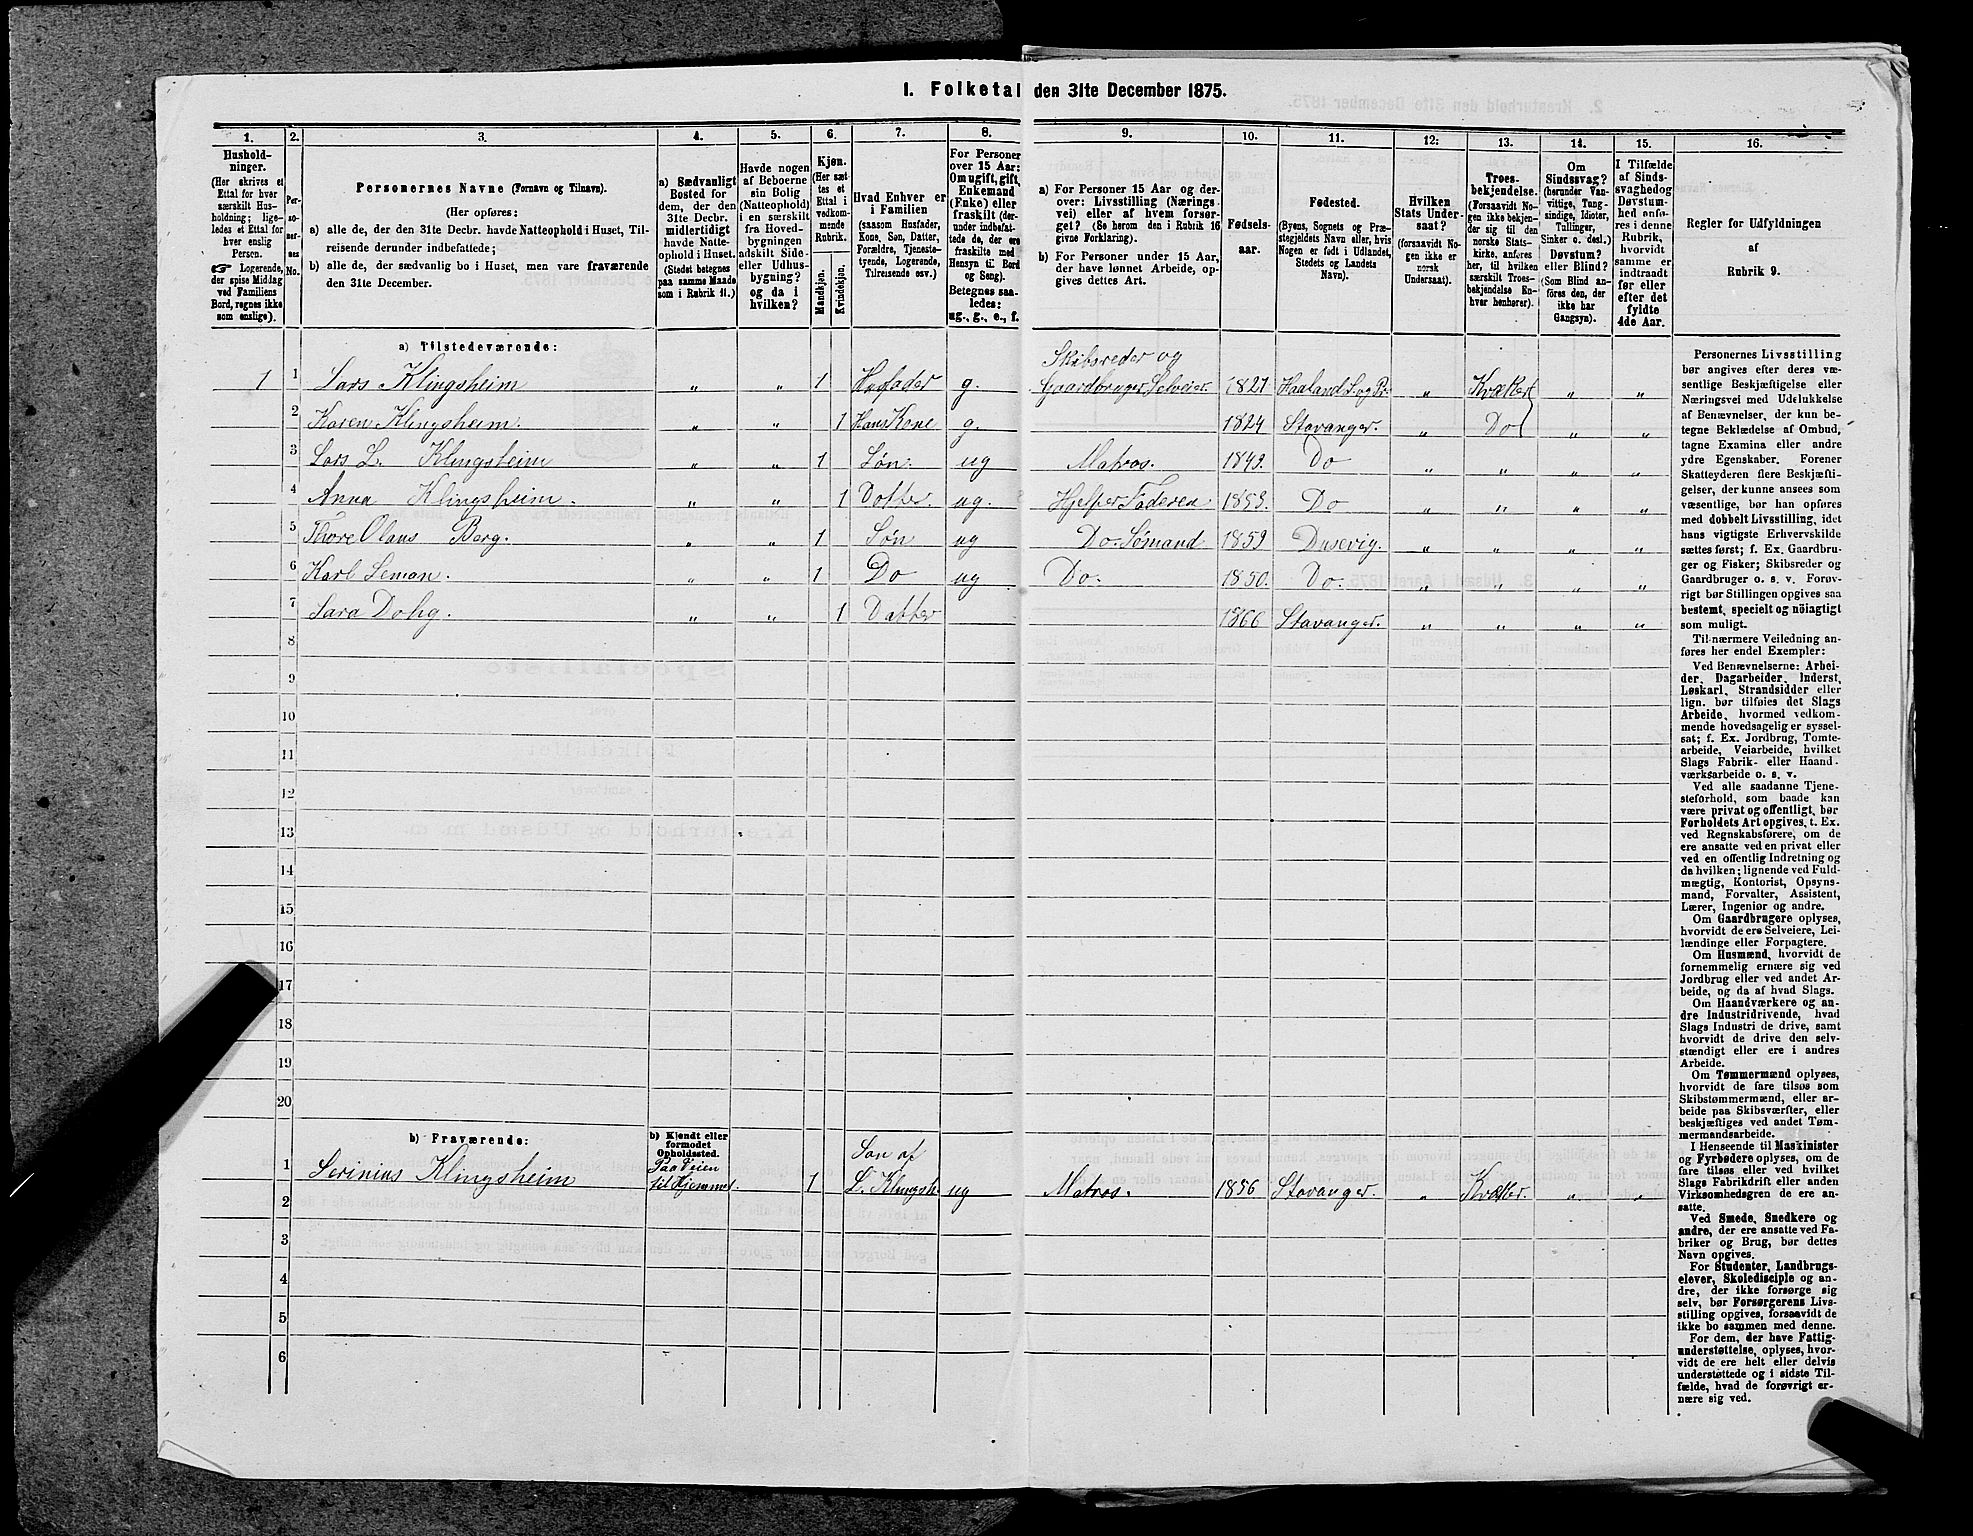 I. Folketal den 31te December 1875.
1. 2. 3. 4. 5. 6. 7. 8. 9. 10. 11. 12. 13. 14. 15. 16.
Husholdninger.
(Her skrives et
Ettal for hver
særskilt Husholdning;
ligeledes et Ettal for
hver enslig
Person.
☞ Logerende,
der spise Middag
ved Familiens
Bord, regnes ikke
som enslige).
Personernes No.
Personernes Navne (Fornavn og Tilnavn).
(Her opføres:
a) alle de, der den 31te Decbr. havde Natteophold i Huset, Tilreisende derunder indbefattede;
b) alle de, der sædvanlig bo i Huset, men vare fraværende
den 31te December.
a) Sædvanligt
Bosted for
dem, der den
31te Decbr.
midlertidigt
havde Natteophold i Huset.
(Stedet betegnes
paa samme Maade
som i Rubrik 11.)
Havde nogen
af Beboerne
sin Bolig
(Natteophold)
i en særskilt
fra Hovedbygningen
adskilt Side- eller Udhusbygning?
og da i
hvilken?
Kjøn.
(Her sættes et
Ettal i
vedkommende
Rubrik.
Mandkjøn.
Kvindekjøn.
Hvad Enhver er
i Familien
(saasom Husfader,
Kone, Søn, Datter,
Forældre, Tjenestetyende, Logerende,
Tilreisende osv.)
For Personer
over 15 Aar:
Om ugift, gift,
Enkemand
(Enke) eller
fraskilt (derunder indbefattede de, der ere
fraskilte med
Hensyn til Bord
og Seng).
Betegnes saaledes:
ug., g., e., f.
a) For Personer 15 Aar og derover: Livsstilling (Næringsvei) eller af hvem forsørget? (Se herom den i Rubrik 16
givne Forklaring).
b) For Personer under 15 Aar,
der have lønnet Arbeide, opgives dettes Art.
Fødselsaar.
Fødested.
(Byens, Sognets og Præstegjeldets Navn eller, hvis
Nogen er født i Udlandet,
Stedets og Landets
Navn).
Hvilken
Stats Undersaat?
(forsaavidt Nogen ikke er
norsk
Undersaat).
Troesbekjendelse.
(Forsaavidt Nogen ikke bekjender sig til den
norske Statskirke, anføres
her, til hvilken
særskilt Troesbekjendelse Enhver henhører).
Om
Sindssvag?
(herunder Vanvittige, Tungsindige, Idioter,
Tullinger,
Sinker o. desl.)
Døvstum?
eller Blind?
(Som Blind anføres den, der
ikke har
Gangsyn).
I Tilfælde
af Sindssvaghed og
Døvstumhed anføres i denne
Rubrik,
hvorvidt
samme er
indtraadt
før eller
efter det
fyldte
4de Aar.
Regler for Udfyldningen
af
Rubrik 9.
a) Tilstedeværende:
Skibsreder og
1 1 Lars Klingsheim „ „ 1 Husfader g. Gaardbruger, Selveier. 1821 Haaland S. og Pr. „ Kvæker „ „
2 Karen Klingsheim. „ „ 1 Hans Kone g. 1824 Stavanger. „ Do „ „
3 Lars L. Klingsheim „ „ 1 Søn. ug Matros. 1849. Do „ „ „ „
4 Anna Klingsheim. „ „ 1 Dotter. ug. Hjelper Faderen 1853. Do „ „ „ „
5 Thore Olaus Berg. „ „ 1 Søn ug Do. Sømand 1859 Dusevig. „ „ „ „
6 Karl Leman. „ „ 1 Do ug Do. 1850. Do. „ „ „ „
7 Sara Dohg. „ „ 1 Datter 1866 Stavanger. „ „ „ „
8
9
10
11
12
13
14
15
16
17
18
19
20
b) Fraværende:
b) Kjendt eller
formodet
Opholdssted.
Paa Veien Søn af
1 Serinius Klingsheim til Hjemmet. 1 L. Klingsh ug Matros. 1856 Stavanger. „ Kvæker. „ „
2
3
4
5
6
Personernes Livsstilling
bør angives efter deres væsentlige Beskjæftigelse eller
Næringsvei med Udelukkelse
af Benævnelser, der kun betegne Beklædelse af Ombud,
tagne Examina eller andre
ydre Egenskaber. Forener
Skatteyderen flere Beskjæftigelser, der kunne ansees som
væsentlige, bør han opføres
med dobbelt Livsstilling, idet
hans vigtigste Erhvervskilde
sættes først; f. Ex. Gaardbruger og Fisker; Skibsreder og
Gaardbruger o. s. v. Forøvrigt bør Stillingen opgives saa
bestemt, specielt og nöiagtigt
som muligt.
Til nærmere Veiledning anføres her endel Exempler:
Ved Benævnelserne: Arbeider, Dagarbeider, Inderst,
Løskarl, Strandsidder eller
lign. bør tilføies det Slags
Arbeide, hvormed vedkommende hovedsagelig er sysselsat; f. Ex. Jordbrug, Tomtearbeide, Veiarbeide, hvilket
Slags Fabrik- eller Haandværksarbeide o. s. v.
Ved alle saadanne Tjenesteforhold, som baade kan
være privat og offentligt, bør
Forholdets Art opgives, t. Ex.
ved Regnskabsførere, om de
ere ansatte ved en privat eller
ved en offentlig Indretning og
da hvilken; lignende ved Fuldmægtig, Kontorist, Opsynsmand, Forvalter, Assistent,
Lærer, Ingeniør og andre.
Om Gaardbrugere oplyses,
hvorvidt de ere Selveiere, Leilændinge eller Forpagtere.
Om Husmænd, hvorvidt de
fornemmelig ernære sig ved
Jordbrug eller ved andet Arbeide, og da af hvad Slags.
Om Haandværkere og andre Industridrivende, hvad
Slags Industri de drive, samt
hvorvidt de drive den selvstændigt eller ere i andres
Arbeide.
Om Tømmermænd oplyses,
hvorvidt de fare tilsøs som
Skibstømmermænd, eller arbeide paa Skibsværfter, eller
beskjæftiges ved andet Tømmermandsarbeide.
I Henseende til Maskinister
og Fyrbødere oplyses, om de
fare tilsøs eller ved hvilket
Slags Fabrikdrift eller anden
Virksomhedsgren de ere ansatte.
Ved Smede, Snedkere og
andre, der ere ansatte ved Fabriker og Brug, bør dettes
Navn opgives.
For Studenter, Landbrugselever, Skoledisciple og andre, der ikke forsørge sig
selv, bør Forsørgerens Livsstilling opgives, forsaavidt de
ikke bo sammen med denne.
For dem, der have Fattigunderstøttelse, oplyses, hvorvidt de ere helt eller delvis
understøttede og i sidste Tilfælde, hvad de forøvrigt ernære sig ved.